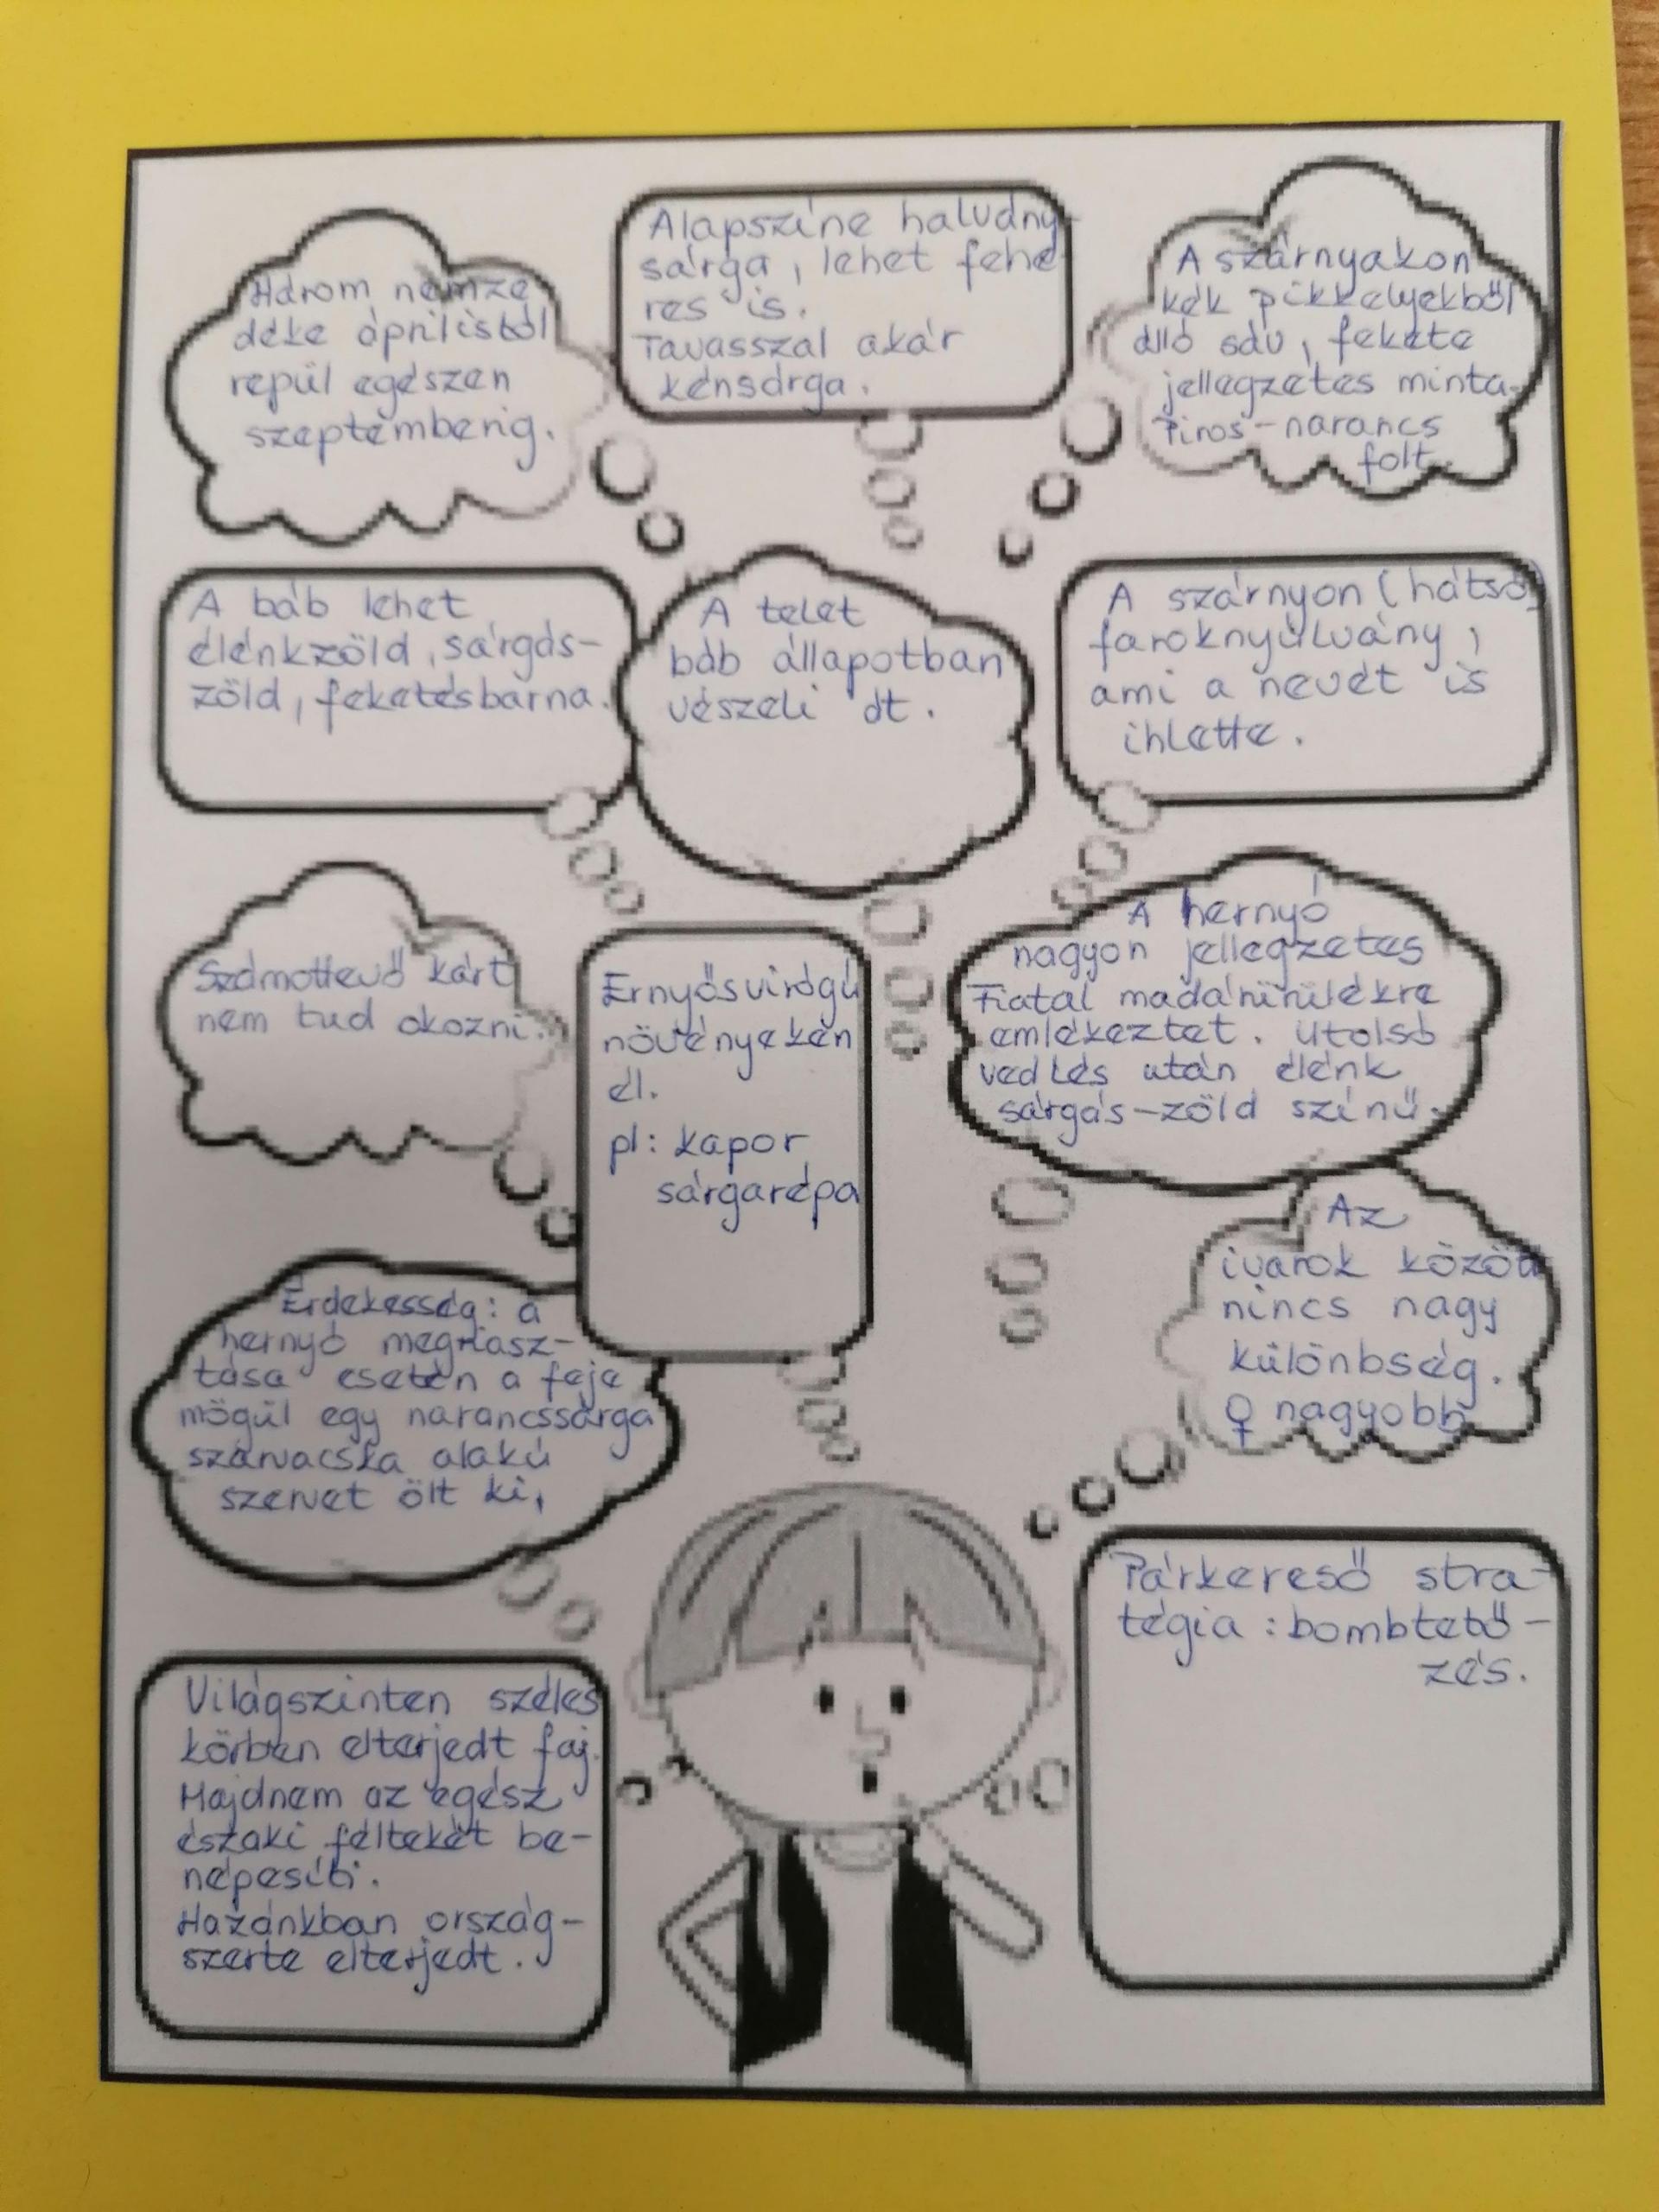 Három nemze
déke áprilistól
repül egészen
szeptemberig.
Alapszíne halvány
sárga, lehet fehé
res is.
Tavasszal akár
kénsárga.
A szárnyakon
kék pikkelyekből
álló sáv, fekete
jellegzetes minta.
Piros-narancs
folt.
A báb lehet
élénkzöld, sárgás-
zöld, feketésbarna.
A telet
báb állapotban
vészeli át.
A szárnyon (hátsó)
faroknyúlvány,
ami a nevét is
ihlette.
Számottevő kárt
nem tud okozni.
Ernyősvirágú
növényeken
él.
pl: kapor
sárgarépa
A hernyó
nagyon jellegzetes
Fiatal madárürülékre
emlékeztet. Utolsó
vedlés után élénk
sárgás-zöld színű.
Érdekesség: a
hernyó megriasz-
tása esetén a feje
mögül egy narancssárga
szarvacska alakú
szervet ölt ki,
Az
ivarok között
nincs nagy
különbség.
♀ nagyobb
Világszinten széles
körben elterjedt faj.
Majdnem az egész
északi féltekét be-
népesíti.
Hazánkban ország-
szerte elterjedt.
Párkereső stra-
tégia: bombtető-
zés.